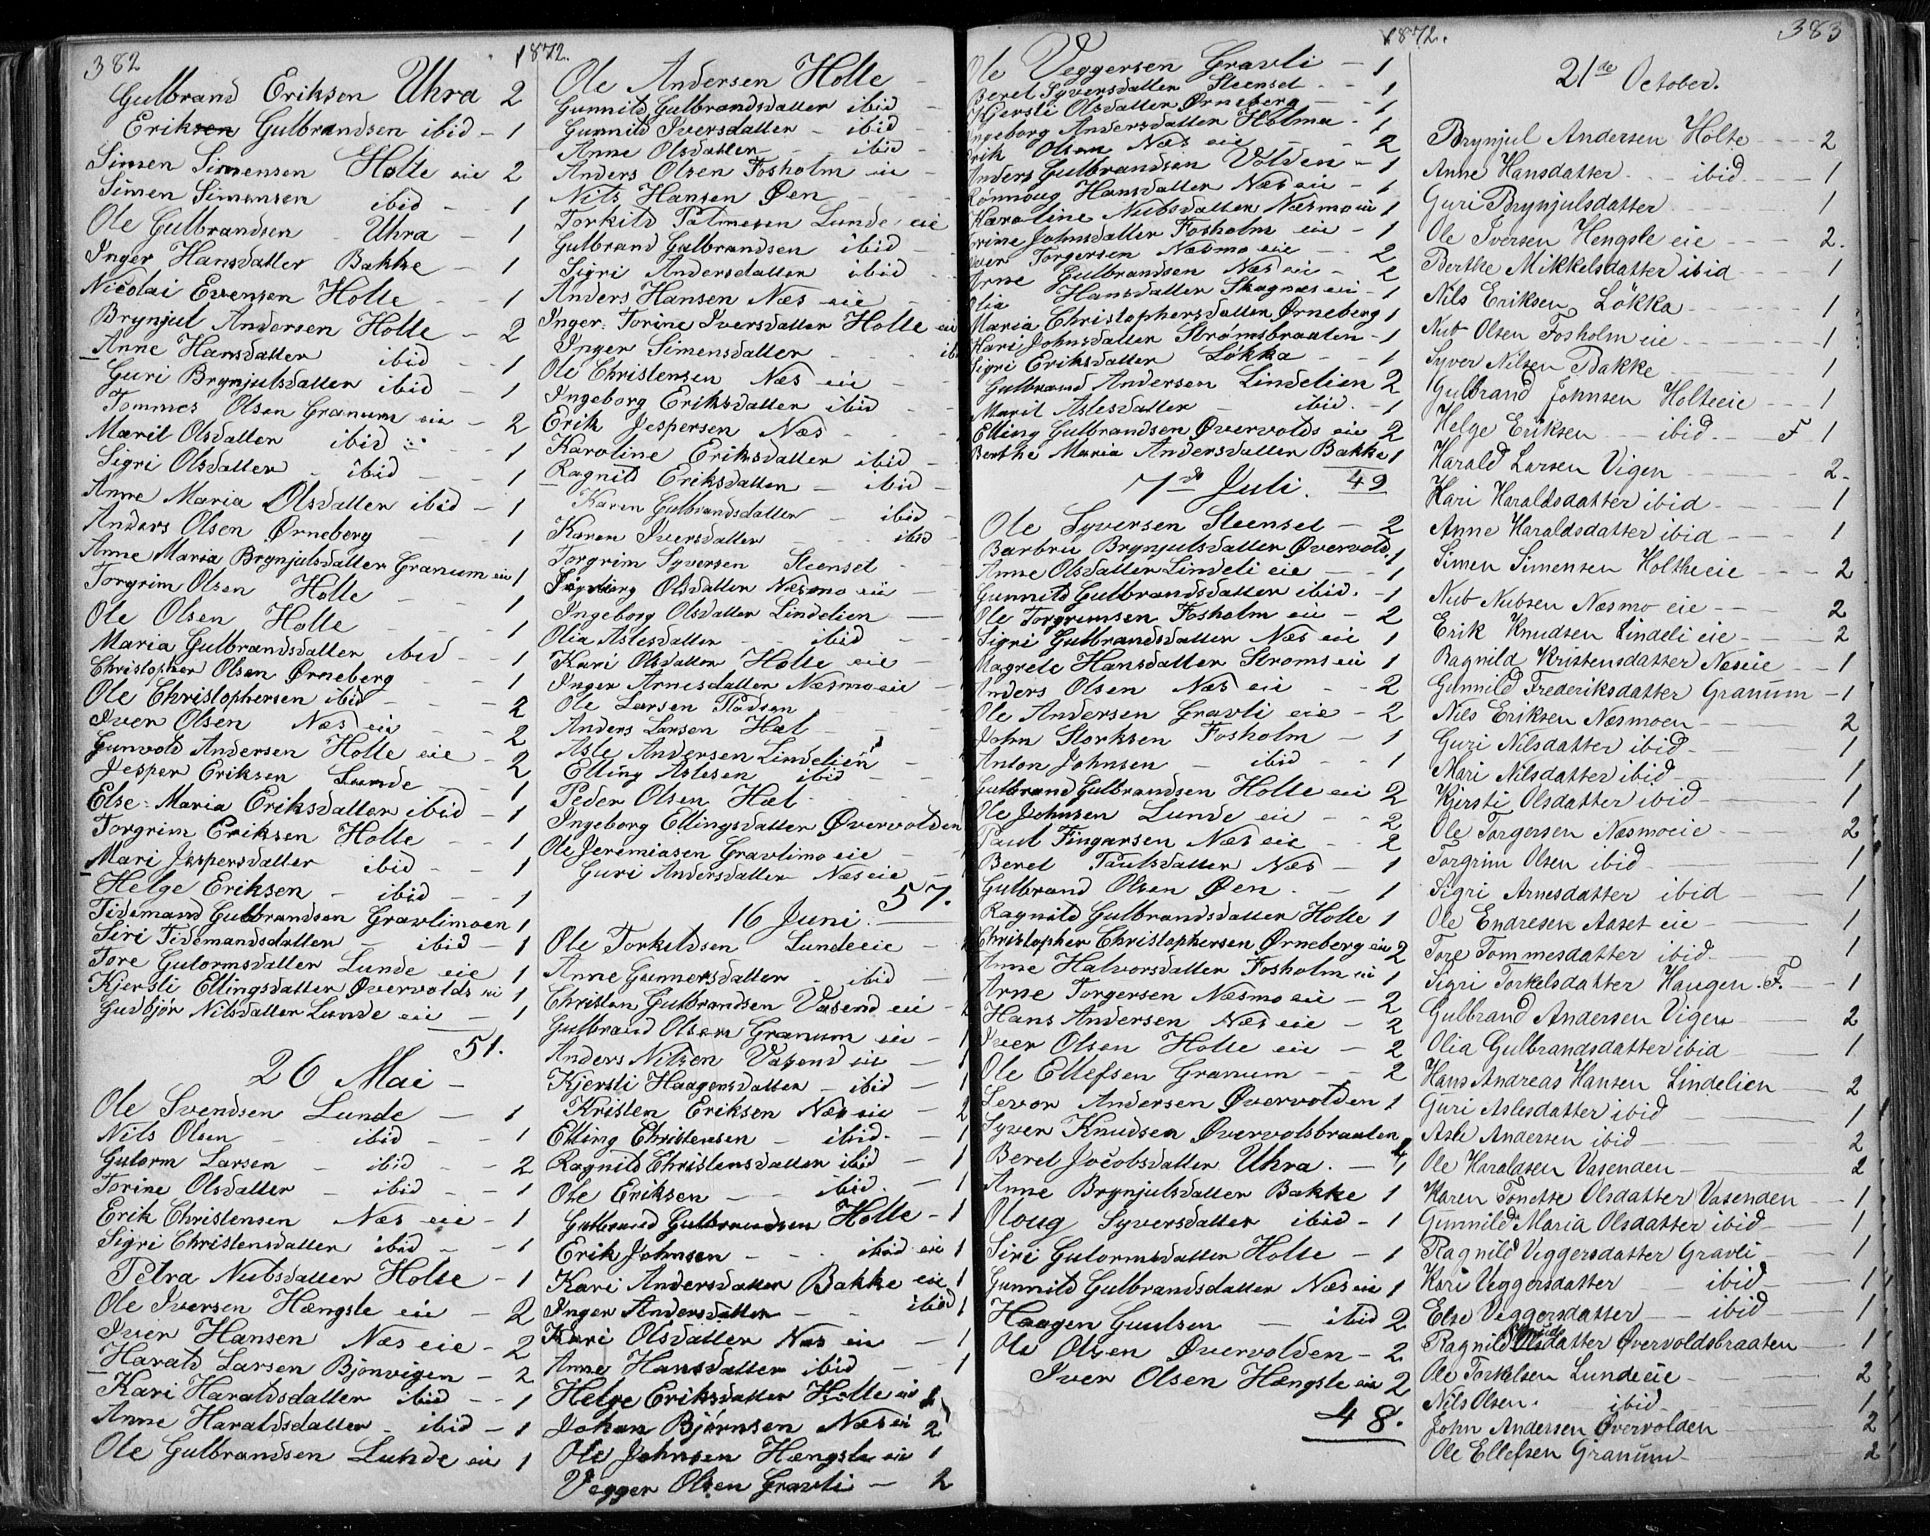 382
1872.
Gulbrand Eriksen Uhra 2
Eriksen Gulbrandsen ibid - 1
Simen Simensen Holte eie 2
Simen Simensen ibid - 1
Ole Gulbrandsen Uhra - 1
Inger Hansdatter Bakke - 1
Nicolai Evensen Holte - - 1
Brynjul Andersen Holte - 2
Anne Hansdatter ibid - - 1
Guri Brynjulsdatter ibid - 1
Tommes Olsen Granum eie - 2
Marit Olsdatter ibid - 1
Sigri Olsdatter - ibid - - 1
Anne Maria Olsdatter ibid - 1
Anders Olsen Ørneberg - - 1
Anne Maria Brynjulsdatter Granum eie 1
Torgrim Olsen Holte - - 1
Ole Olsen Holte - - 1
Maria Gulbrandsdatter ibid - - 1
Christopher Olsen Ørneberg - - 1
Ole Christophersen ibid - - - 2
Iver Olsen Næs eie - - 2
Gunvold Andersen Holte eie - 2
Jesper Eriksen Lunde - - 1
Else Maria Eriksdatter ibid - 1
Torgrim Eriksen Holte - - 1
Mari Jespersdatter ibid - - 1
Helge Eriksen - ibid - - 1
Tidemand Gulbrandsen Gravlimoen 1
Siri Tidemandsdatter - ibid - 1
Tore Gutormsdatter Lunde eie 1
Kjersti Ellingsdatter Øvervolds eie 1
Gudbjør Nilsdatter Lunde eie - 1
51.
26 Mai -
Ole Svendsen Lunde - 1
Nils Olsen - - ibid - - 1
Gutorm Larsen - ibid - - 2
Torine Olsdatter - ibid - - 1
Erik Christensen Næs eie - 1
Sigri Christensdatter ibid - - 1
Petra Nubsdatter Holte - 1
Ole Iversen Hængsle eie - 2
Iver Hansen Næs eie - 2
Harald Larsen Bjönvigen - 2
Kari Haraldsdatter ibid - - 1
Anne Haraldsdatter - ibid - 1
Ole Gulbrandsen Lunde eie 1
Ole Andersen Holte -
Gunnild Gulbrandsdatter ibid -
Gunnild Iversdatter - ibid -
Anne Olsdatter - - ibid -
Anders Olsen Fosholm eie -
Nils Hansen Øen - - -
Torkild Palmesen Lunde eie
Gulbrand Gulbrandsen ibid -
Sigri Andersdatter ibid -
Anders Hansen Næs eie -
Inger Torine Iversdatter Holte eie
Inger Simensdatter - - ibid
Ole Christensen Næs eie
Ingeborg Eriksdatter ibid - -
Erik Jespersen Næs - - -
Karoline Eriksdatter ibid -
Ragnild Eriksdatter - ibid -
Karen Gulbrandsdatter - ibid -
Karen Iversdatter - - ibid -
Torgrim Syversen Steenset -
Ingeborg Olsdatter Næsmo eie - -
Ingeborg Olsdatter Lindelien -
Olia Aslesdatter - - ibid -
Kari Olsdatter Holte eie -
Inger Arnesdatter Næsmo eie -
Ole Larsen Flodsen -
Anders Larsen Hæl -
Asle Andersen Lindelien -
Elling Aslesen ibid - -
Peder Olsen Hæl - -
Ingeborg Ellingsdatter Øvervolden
Ole Jeremiasen Gravlimo eie -
Guri Andersdatter Næs eie - 1
57.
16 Juni.
Ole Torkildsen Lunde eie -
Anne Gunnersdatter - ibid -
Christen Gulbrandsen Vasend eie -
Gulbrand Olsen Granum eie - 1
Anders Nilsen Vasend eie - 1
Kjersti Haagensdatter - ibid - 1
Kristen Eriksen Næs eie - 2
Elling Christensen - ibid. - 1
Ragnild Christensdatter ibid - 1
Ole Eriksen - - ibid. - 1
Gulbrand Gulbrandsen Holte - 1
Erik Johnsen - - - ibid eie 1
Kari Andersdatter Bakke eie 1
Inger Andersdatter - - ibid 1
Kari Olsdatter Næs eie - 1
Anne Hansdatter ibid - - 1
Helge Eriksdatter Holte eie 1
Johan Bjørnsen Næs eie 2
Ole Johnsen Hængsle eie 1
Vegger Olsen Gravli - 2
1872.
383
Ole Veggersen Gravli - 1
Beret Syversdatter Steenset - - 1
Kjersti Olsdatter Ørneberg - - 1
Ingeborg Andersdatter Holma - 1
Erik Olsen Næs eie - - 2
Anders Gulbrandsen Volden - 1
Rønnoug Hansdatter Næs eie - 1
Karoline Nubsdatter Næsmo eie 1
Trine Johnsdatter Fosholm eie - 1
Iver Torgersen Næsmo eie - 2
Arne Gulbrandsen Næs eie - 2
Olia Hansdatter Skagnæs eie - 1
Maria Christophersdatter Ørneberg 1
Kari Johnsdatter Strømsbraaten - 1
Sigri Eriksdatter Løkka - - 1
Gulbrand Andersen Lindelien 2
Marit Aslesdatter - ibid. - 1
Elling Gulbrandsen Øvervolds eie 2
Berthe Maria Andersdatter Bakke 1
7de Juli. 49
Ole Syversen Steenset - 2
Barbru Brynjulsdatter Øvervold. 1
Anne Olsdatter Lindeli eie - - 1
Gunnild Gulbrandsdatter ibid. - 1
Ole Torgrimsen Fosholm eie - 2
Sigri Gulbrandsdatter Næs eie 1
Magrete Hansdatter Stroms eie 1
Anders Olsen Næs eie - - 2
Ole Andersen Gravli eie - 2
John Storksen Fosholm - 1
Anton Johnsen - ibid - - 1
Gulbrand Gulbrandsen Holte eie 2
Ole Johnsen Lunde eie - - 2
Paul Fingarsen Næs eie - - 2
Beret Paulsdatter Næs - 1
Gulbrand Olsen Øen - - 1
Ragnild Gulbrandsdatter Holte 1
Christopher Christophersen Ørneberg eie 2
Anne Halvorsdatter Fosholm eie 1
Arne Torgersen Næsmo eie - 2
Hans Andersen Næs eie - 2
Iver Olsen Holte eie - 2
Ole Ellefsen Granum - - 2
Sevor Andersen Øvervolden 1
Syver Knudsen Øvervolsbraaten 2
Beret Jacobsdatter Uhra. - 1
Anne Brynjulsdatter Bakke 1
Oloug Syversdatter ibid - 1
Siri Gutormsdatter Holte - 1
Gunnild Gulbrandsdatter Næs eie 1
Haagen Guulsen - ibid 2
Ole Olsen Øvervolden - 2
Iver Olsen Hængsle eie 2
48.
21de October.
Brynjul Andersen Holte - - - 2
Anne Hansdatter - - ibid - - - 1
Guri Brynjulsdatter - - - 1
Ole Iversen Hengsle eie - - - 2.
Berthe Mikkelsdatter ibid - - - 1
Nils Eriksen Løkka - - - 1
Nub Olsen Fosholm eie - - - 1
Syver Nilsen Bakke - - - 1
Gulbrand Johnsen Holte eie - - 1
Helge Eriksen - - ibid. - - F 1
Harald Larsen Vigen - - - 2.
Kari Haraldsdatter ibid - - - 1
Anne Haraldsdatter ibid - - - 1
Simen Simensen Holthe eie - - 2
Nub Nubsen Næsmo eie - - - 2
Erik Knudsen Lindeli eie - - 2
Ragnild Kristensdatter Næs eie - - 1
Gunnild Frederiksdatter Granum - 1
Nils Eriksen Næsmoen - - 2
Guri Nilsdatter ibid - - 1
Mari Nilsdatter ibid - - 1
Kjersti Olsdatter ibid - - 1
Ole Torgersen Næsmoeie - - 2
Torgrim Olsen ibid - 1
Sigri Arnesdatter ibid - 1
Ole Endresen Aaset eie - 1
Tore Tommesdatter ibid. - 1
Sigri Torkelsdatter Haugen. F. - - 1
Gulbrand Andersen Vigen - 2
Olia Gulbrandsdatter ibid - 1
Hans Andreas Hansen Lindelien - 2
Guri Aslesdatter ibid - 1
Asle Andersen ibid - 2
Ole Haraldsen Vasenden - 2
Karen Tonette Olsdatter Vasenden - 1
Gunnild Maria Olsdatter ibid - 1
Ragnild Veggersdatter Gravli - 1
Kari Veggersdatter - ibid - 1
Else Veggersdatter - ibid - 1
Ragnild Olsdatter Øvervoldsbraaten - 1
Ole Torkelsen Lunde eie - 2
Nils Olsen - ibid - 1
John Andersen Øvervolden - 2
Ole Ellefsen Granum - 2